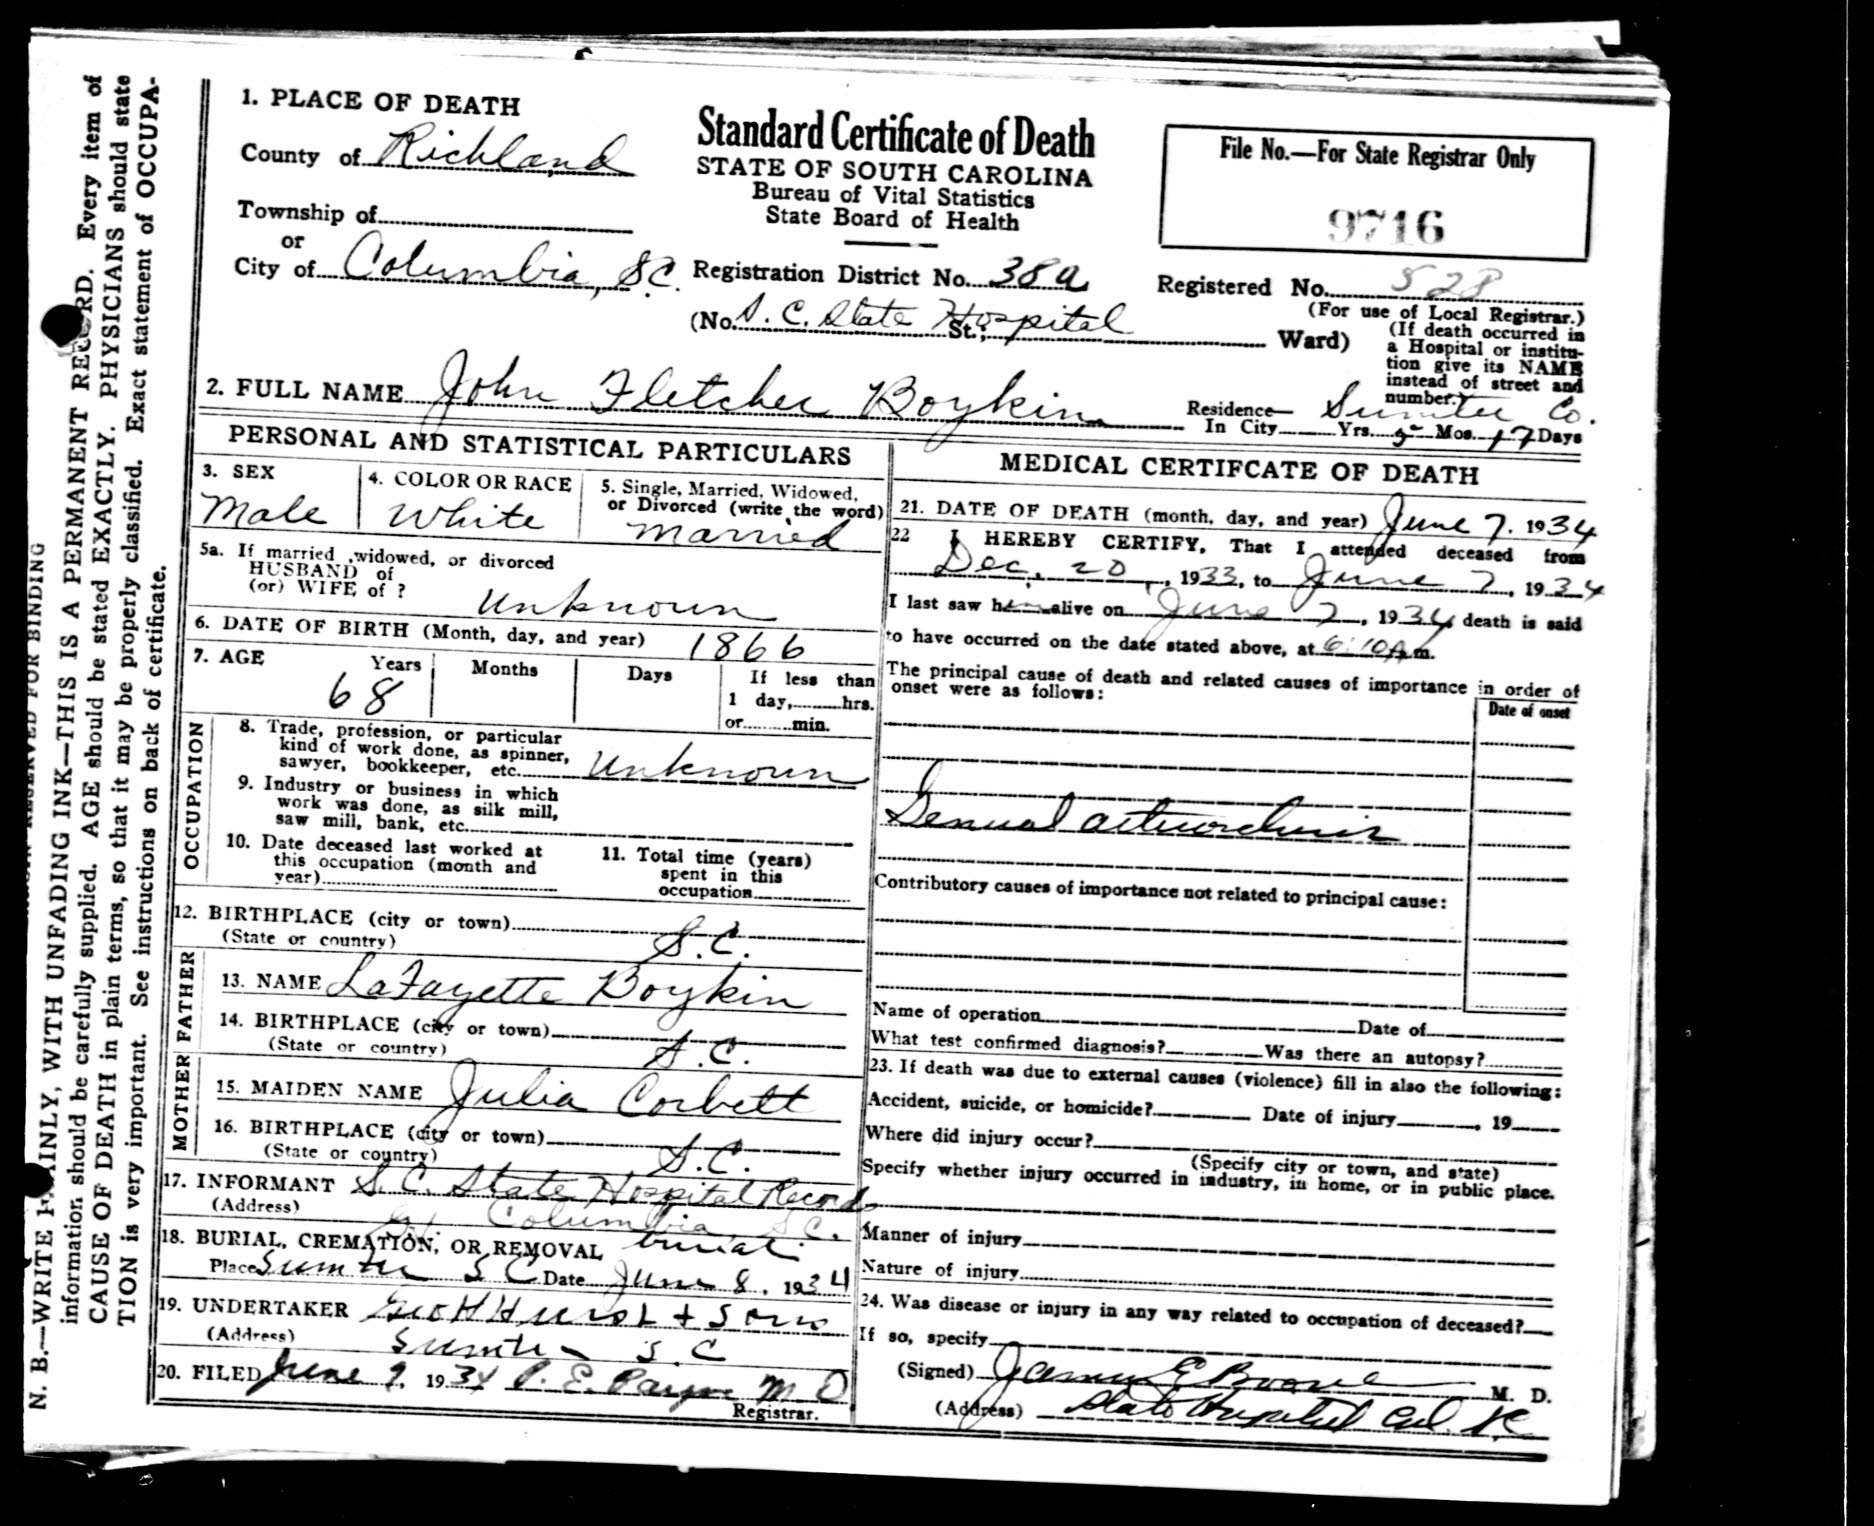 1. PLACE OF DEATH
County of Richland
Township of
or
City of Columbia, S.C.
Standard Certificate of Death
STATE OF SOUTH CAROLINA
Bureau of Vital Statistics
State Board of Health
File No.—For State Registrar Only
9716
Registration District No. 38a
Registered No. 528
(For use of Local Registrar.)
(No. S. C. State Hospital St.; Ward)
(If death occurred in
a Hospital or institu-
tion give its NAME
instead of street and
number.)
2. FULL NAME John Fletcher Boykin
Residence— Sumter Co.
In City Yrs. 5 Mos. 17 Days
PERSONAL AND STATISTICAL PARTICULARS
3. SEX
Male
4. COLOR OR RACE
White
5. Single, Married, Widowed,
or Divorced (write the word)
Married
5a. If married, widowed, or divorced
HUSBAND of
(or) WIFE of ?
Unknown
6. DATE OF BIRTH (Month, day, and year) 1866
7. AGE Years Months Days If less than
68 1 day, hrs.
or min.
OCCUPATION
8. Trade, profession, or particular
kind of work done, as spinner,
sawyer, bookkeeper, etc. Unknown
9. Industry or business in which
work was done, as silk mill,
saw mill, bank, etc.
10. Date deceased last worked at
this occupation (month and
year)
11. Total time (years)
spent in this
occupation
12. BIRTHPLACE (city or town)
(State or country) S.C.
FATHER
13. NAME LaFayette Boykin
14. BIRTHPLACE (city or town)
(State or country) S.C.
MOTHER
15. MAIDEN NAME Julia Corbett
16. BIRTHPLACE (city or town)
(State or country) S.C.
17. INFORMANT S.C. State Hospital Records
(Address) Columbia, S.C.
18. BURIAL, CREMATION, OR REMOVAL burial
Place Sumter S C Date June 8, 1934
19. UNDERTAKER Geo H Hurst + Sons
(Address) Sumter S.C
20. FILED June 9, 1934 P. E. Payne M D
Registrar.
MEDICAL CERTIFCATE OF DEATH
21. DATE OF DEATH (month, day, and year) June 7. 1934
22 I HEREBY CERTIFY, That I attended deceased from
Dec. 20, 1933, to June 7, 1934
I last saw him alive on June 7, 1934, death is said
to have occurred on the date stated above, at 6:10 A m.
The principal cause of death and related causes of importance in order of
onset were as follows:
Date of onset
Contributory causes of importance not related to principal cause:
Name of operation Date of
What test confirmed diagnosis? Was there an autopsy?
23. If death was due to external causes (violence) fill in also the following:
Accident, suicide, or homicide? Date of injury , 19
Where did injury occur?
(Specify city or town, and state)
Specify whether injury occurred in industry, in home, or in public place.
Manner of injury
Nature of injury
24. Was disease or injury in any way related to occupation of deceased?
If so, specify
(Signed) James E Boone M. D.
(Address) State Hospital Col. S.C.
N. B.—WRITE PLAINLY, WITH UNFADING INK—THIS IS A PERMANENT RECORD. Every item of
information should be carefully supplied. AGE should be stated EXACTLY. PHYSICIANS should state
CAUSE OF DEATH in plain terms, so that it may be properly classified. Exact statement of OCCUPA-
TION is very important. See instructions on back of certificate.
RESERVED FOR BINDING